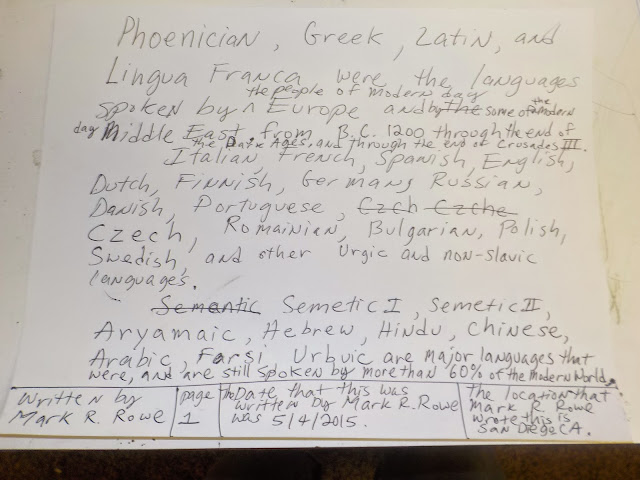 Phoenician, Greek, Latin, and
Lingua Franca were the languages
the people of modern day
spoken by ^ Europe and by the some of the modern
day Middle East from B.C. 1200 through the end of
the Dark Ages, and through the end of Crusades III.
Italian, French, Spanish, English,
Dutch, Finnish, Germany Russian,
Danish, Portuguese, Czch Czche
Czech, Romainian, Bulgarian, Polish,
Swedish, and other Urgic and non-slavic
languages.
Semantic Semetic I, Semetic II,
Aryamaic, Hebrew, Hindu, Chinese,
Arabic, Farsi, Urbuic are major languages that
were, and are still spoken by more than 60% of the modern World.
Written by
Mark R. Rowe
page
1
the Date that this was
written by Mark R. Rowe
was 5/4/2015.
the location that
Mark R. Rowe
wrote this is
San Diego CA.